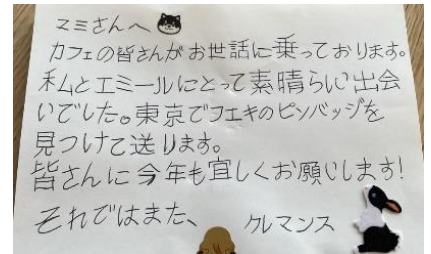 マミさんへ
カフェの皆さんがお世話に乗っております。
私とエミールにとって素晴らしい出会
いでした。東京でフエキのピンバッジを
見つけて送ります。
皆さんに今年も宜しくお願じします!
それではまた、 クレマンス